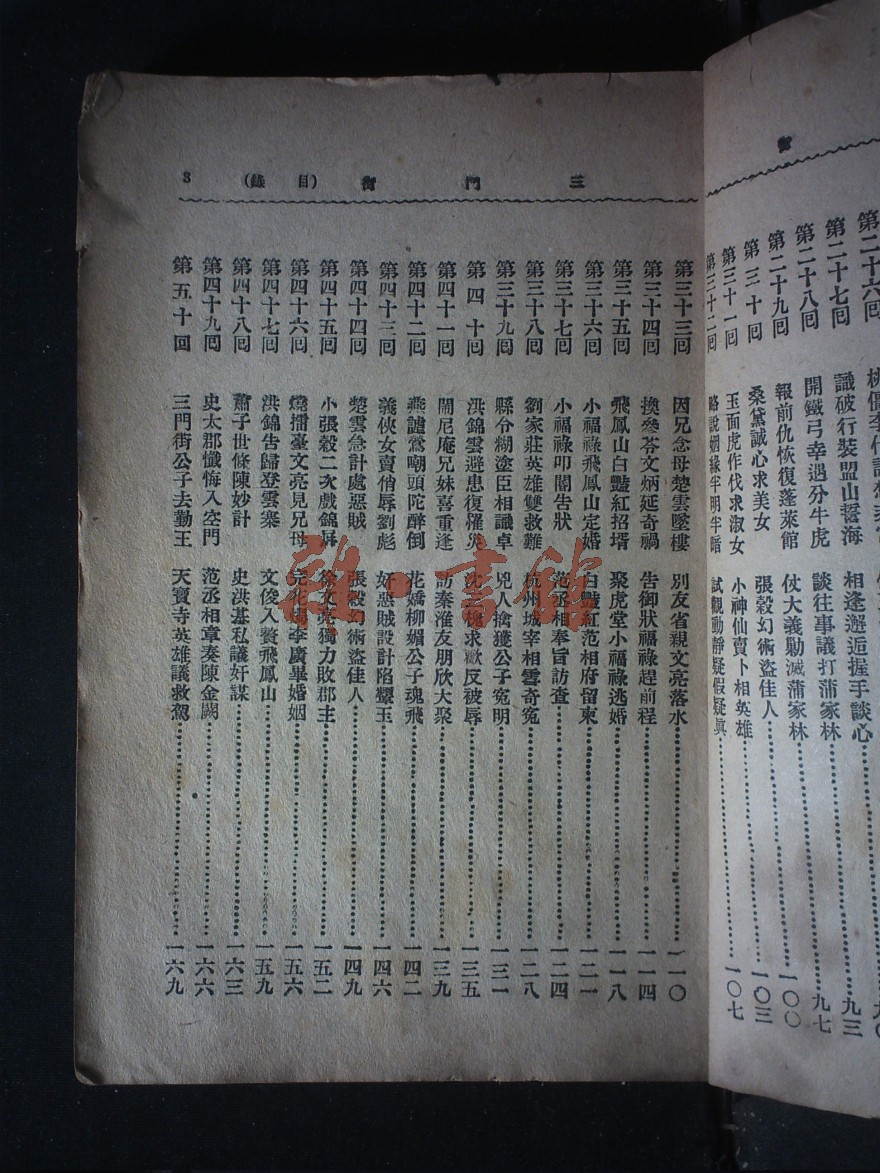 三門街 (目錄) 3
第二十六回
第二十七回 識破行裝盟山誓海 相逢邂逅握手談心 九三
第二十八回 開鐵弓幸遇分牛虎 談往事議打蒲家林 九七
第二十九回 報前仇恢復蓬萊館 仗大義勦滅蒲家林 一〇〇
第三十回 桑黛誠心求美女 張穀幻術盜佳人 一〇三
第三十一回 玉面虎作伐求淑女 小神仙賣卜相英雄 一〇七
第三十二回 略說姻緣半明半暗 試觀動靜疑假疑眞
第三十三回 因兄念母楚雲墜樓 別友省親文亮落水 一一〇
第三十四回 換參苓文炳延奇禍 告御狀福祿趕前程 一一四
第三十五回 飛鳳山白豔紅招壻 聚虎堂小福祿逃婚 一一八
第三十六回 小福祿飛鳳山定婚 白豔紅范相府留柬 一二一
第三十七回 小福祿叩閽告狀 范丞相奉旨訪查 一二四
第三十八回 劉家莊英雄雙救難 杭州城宰相雪奇冤 一二八
第三十九回 縣令糊塗臣相識卓 兇人擒獲公子冤明 一三一
第四十回 洪錦雲避患復罹災 沈三槐求歡反被辱 一三五
第四十一回 鬧尼庵兄妹喜重逢 訪秦淮友朋欣大聚 一三九
第四十二回 燕謔鶯嘲頭陀醉倒 花嬌柳媚公子魂飛 一四二
第四十三回 義俠女賣俏辱劉彪 奸惡賊設計陷顰玉 一四六
第四十四回 楚雲急計處惡賊 張穀幻術盜佳人 一四九
第四十五回 小張穀二次戲錦屏 徐文亮獨力敗郡主 一五二
第四十六回 燒擂臺文亮見兄母 完花燭李廣畢婚姻 一五六
第四十七回 洪錦告歸登雲寨 文俊入贅飛鳳山 一五九
第四十八回 蕭子世條陳妙計 史洪基私議奸謀 一六三
第四十九回 史太郡懺悔入空門 范丞相章奏陳金闕 一六六
第五十回 三門街公子去勤王 天寶寺英雄議救駕 一六九